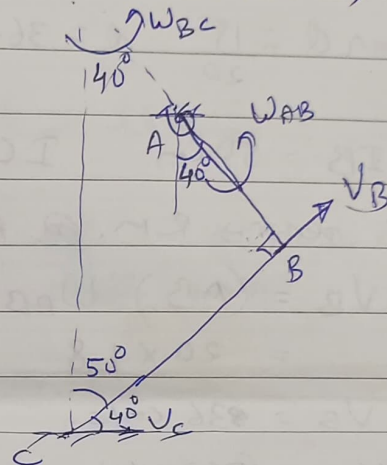 ω_BC
40°
A
ω_AB
40°
V_B
B
50°
40°
V_C
C